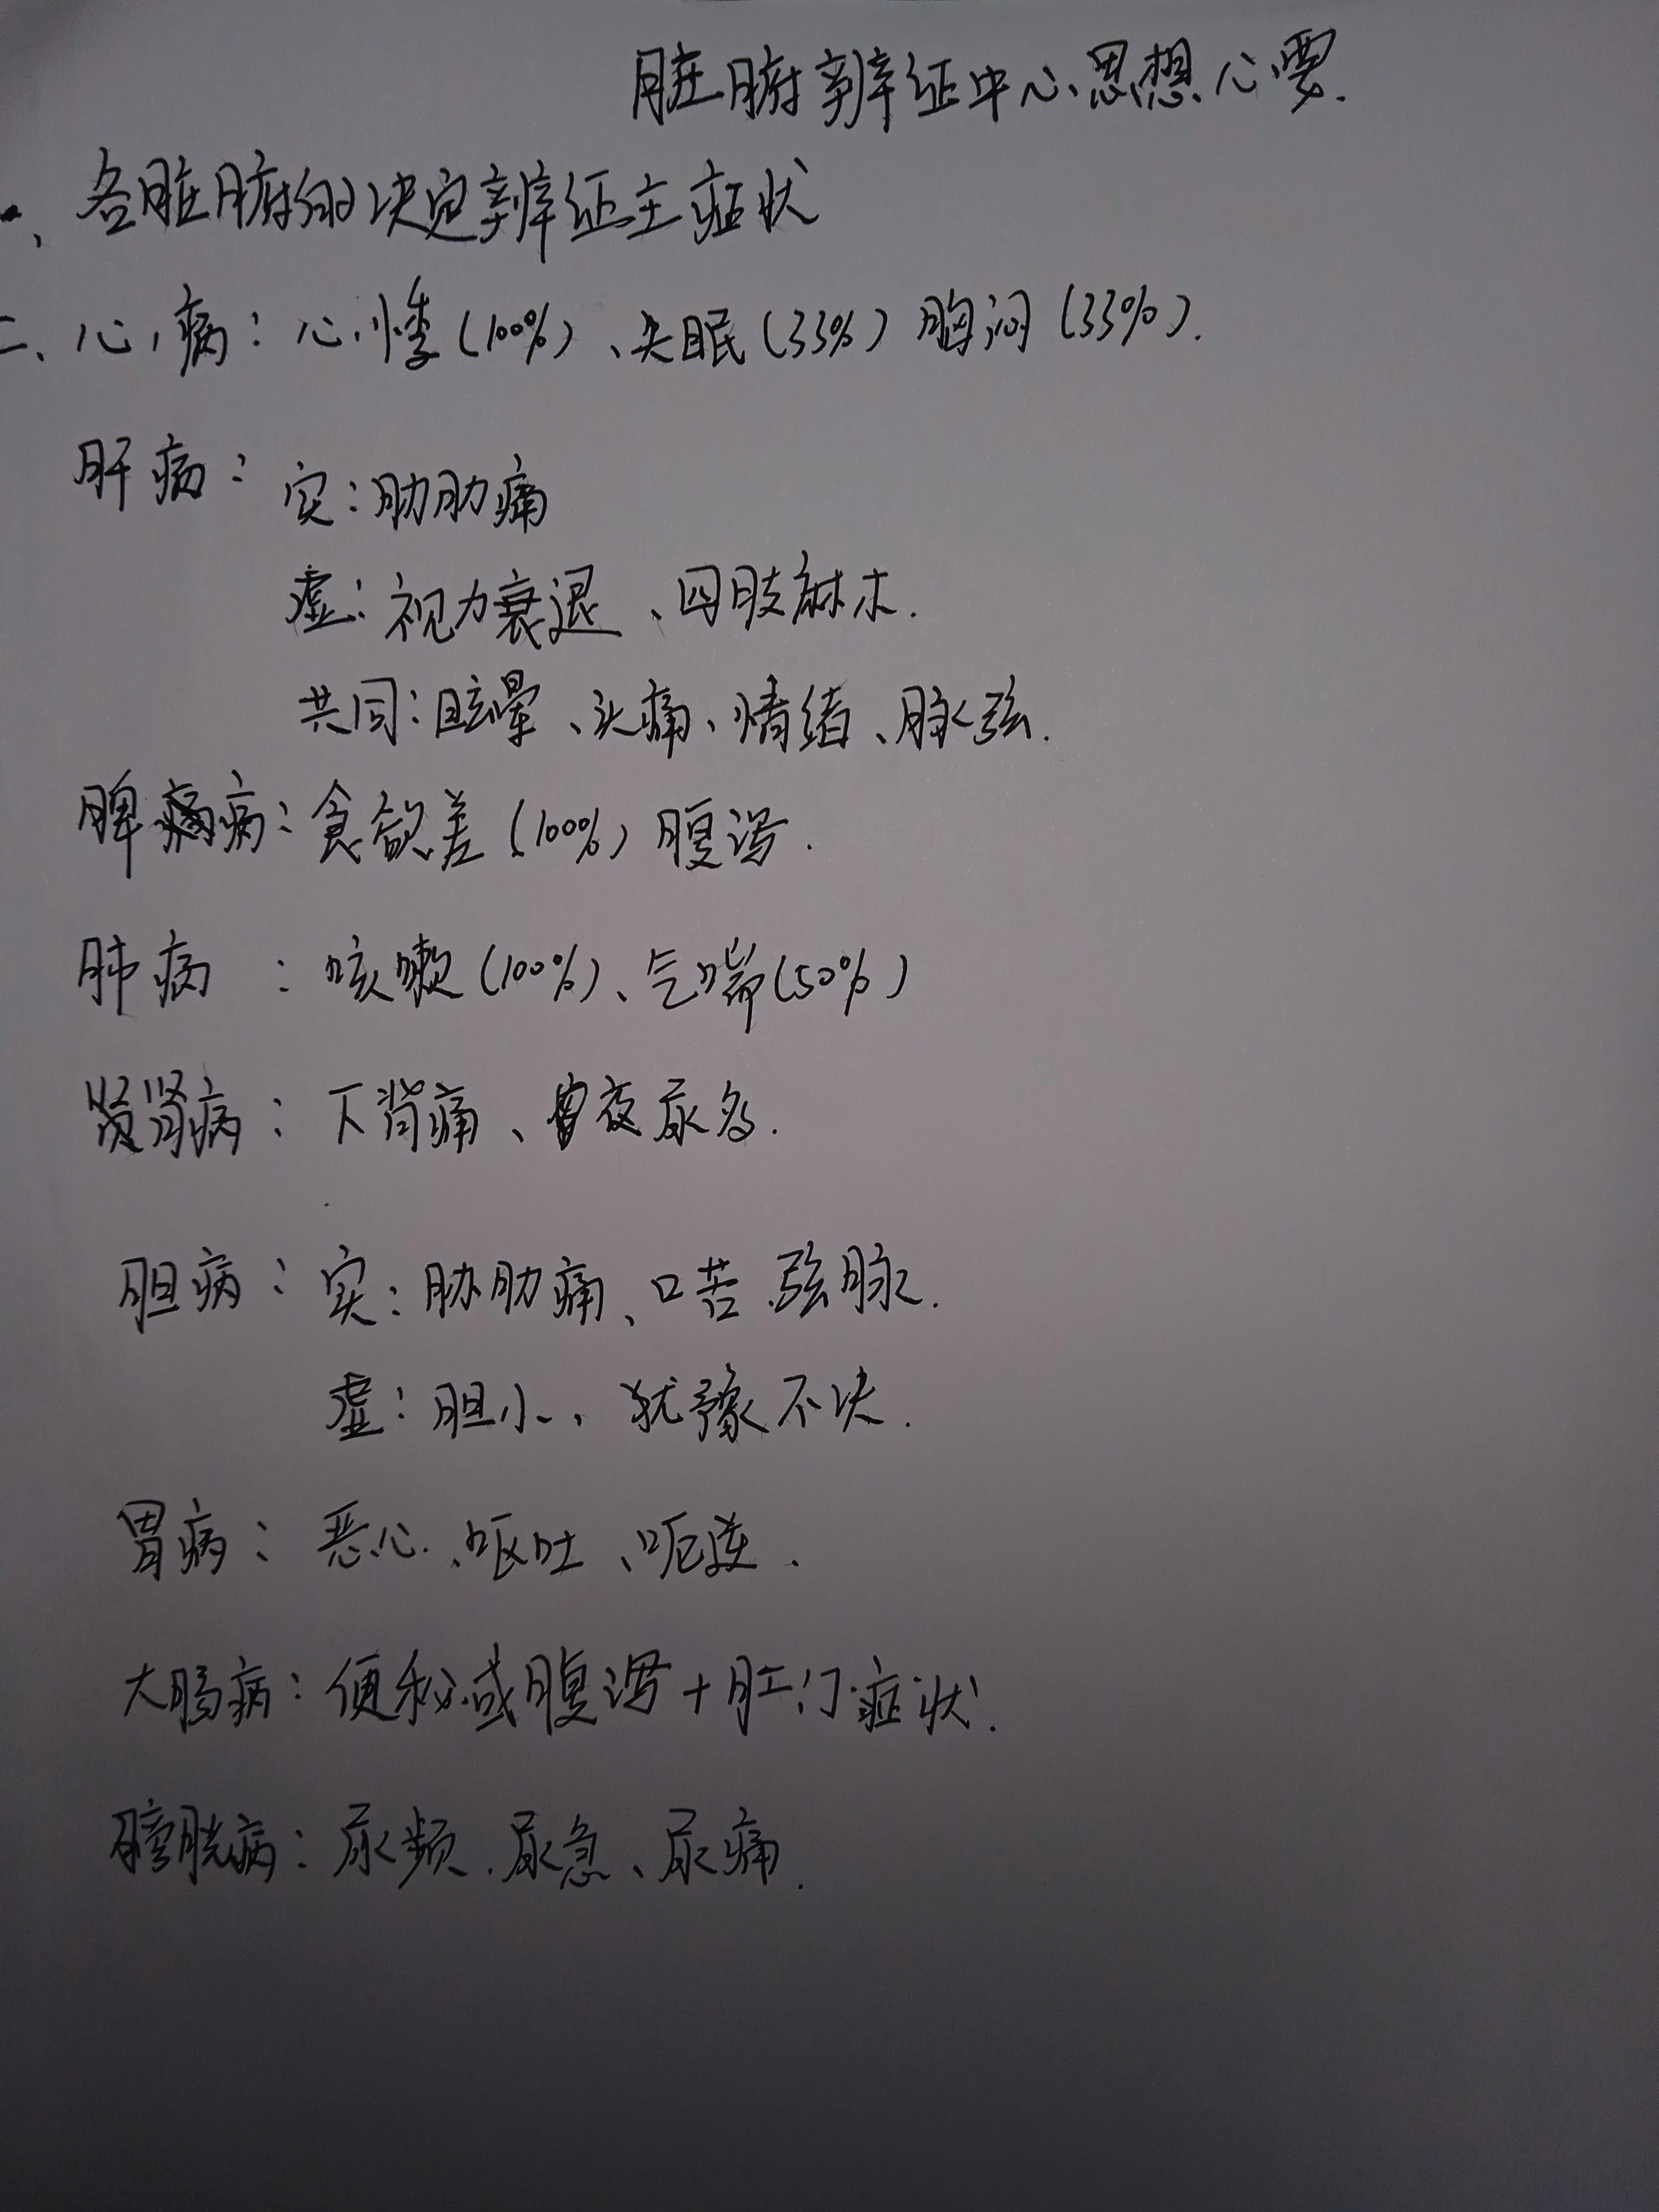 脏腑辨证中心思想心要.
一、各脏腑的决定辨证主症状
二、心病：心悸(100%)、失眠(33%) 胸闷(33%).
肝病：实：肋肋痛
虚：视力衰退、四肢麻木.
共同：眩晕、头痛、情绪、脉弦.
脾病：食欲差(100%) 腹泻.
肺病：咳嗽(100%)、气喘(50%)
肾病：下背痛、夜尿多.
胆病：实：胁肋痛、口苦、弦脉.
虚：胆小、犹豫不决.
胃病：恶心、呕吐、呃逆.
大肠病：便秘或腹泻+肛门症状.
膀胱病：尿频、尿急、尿痛.